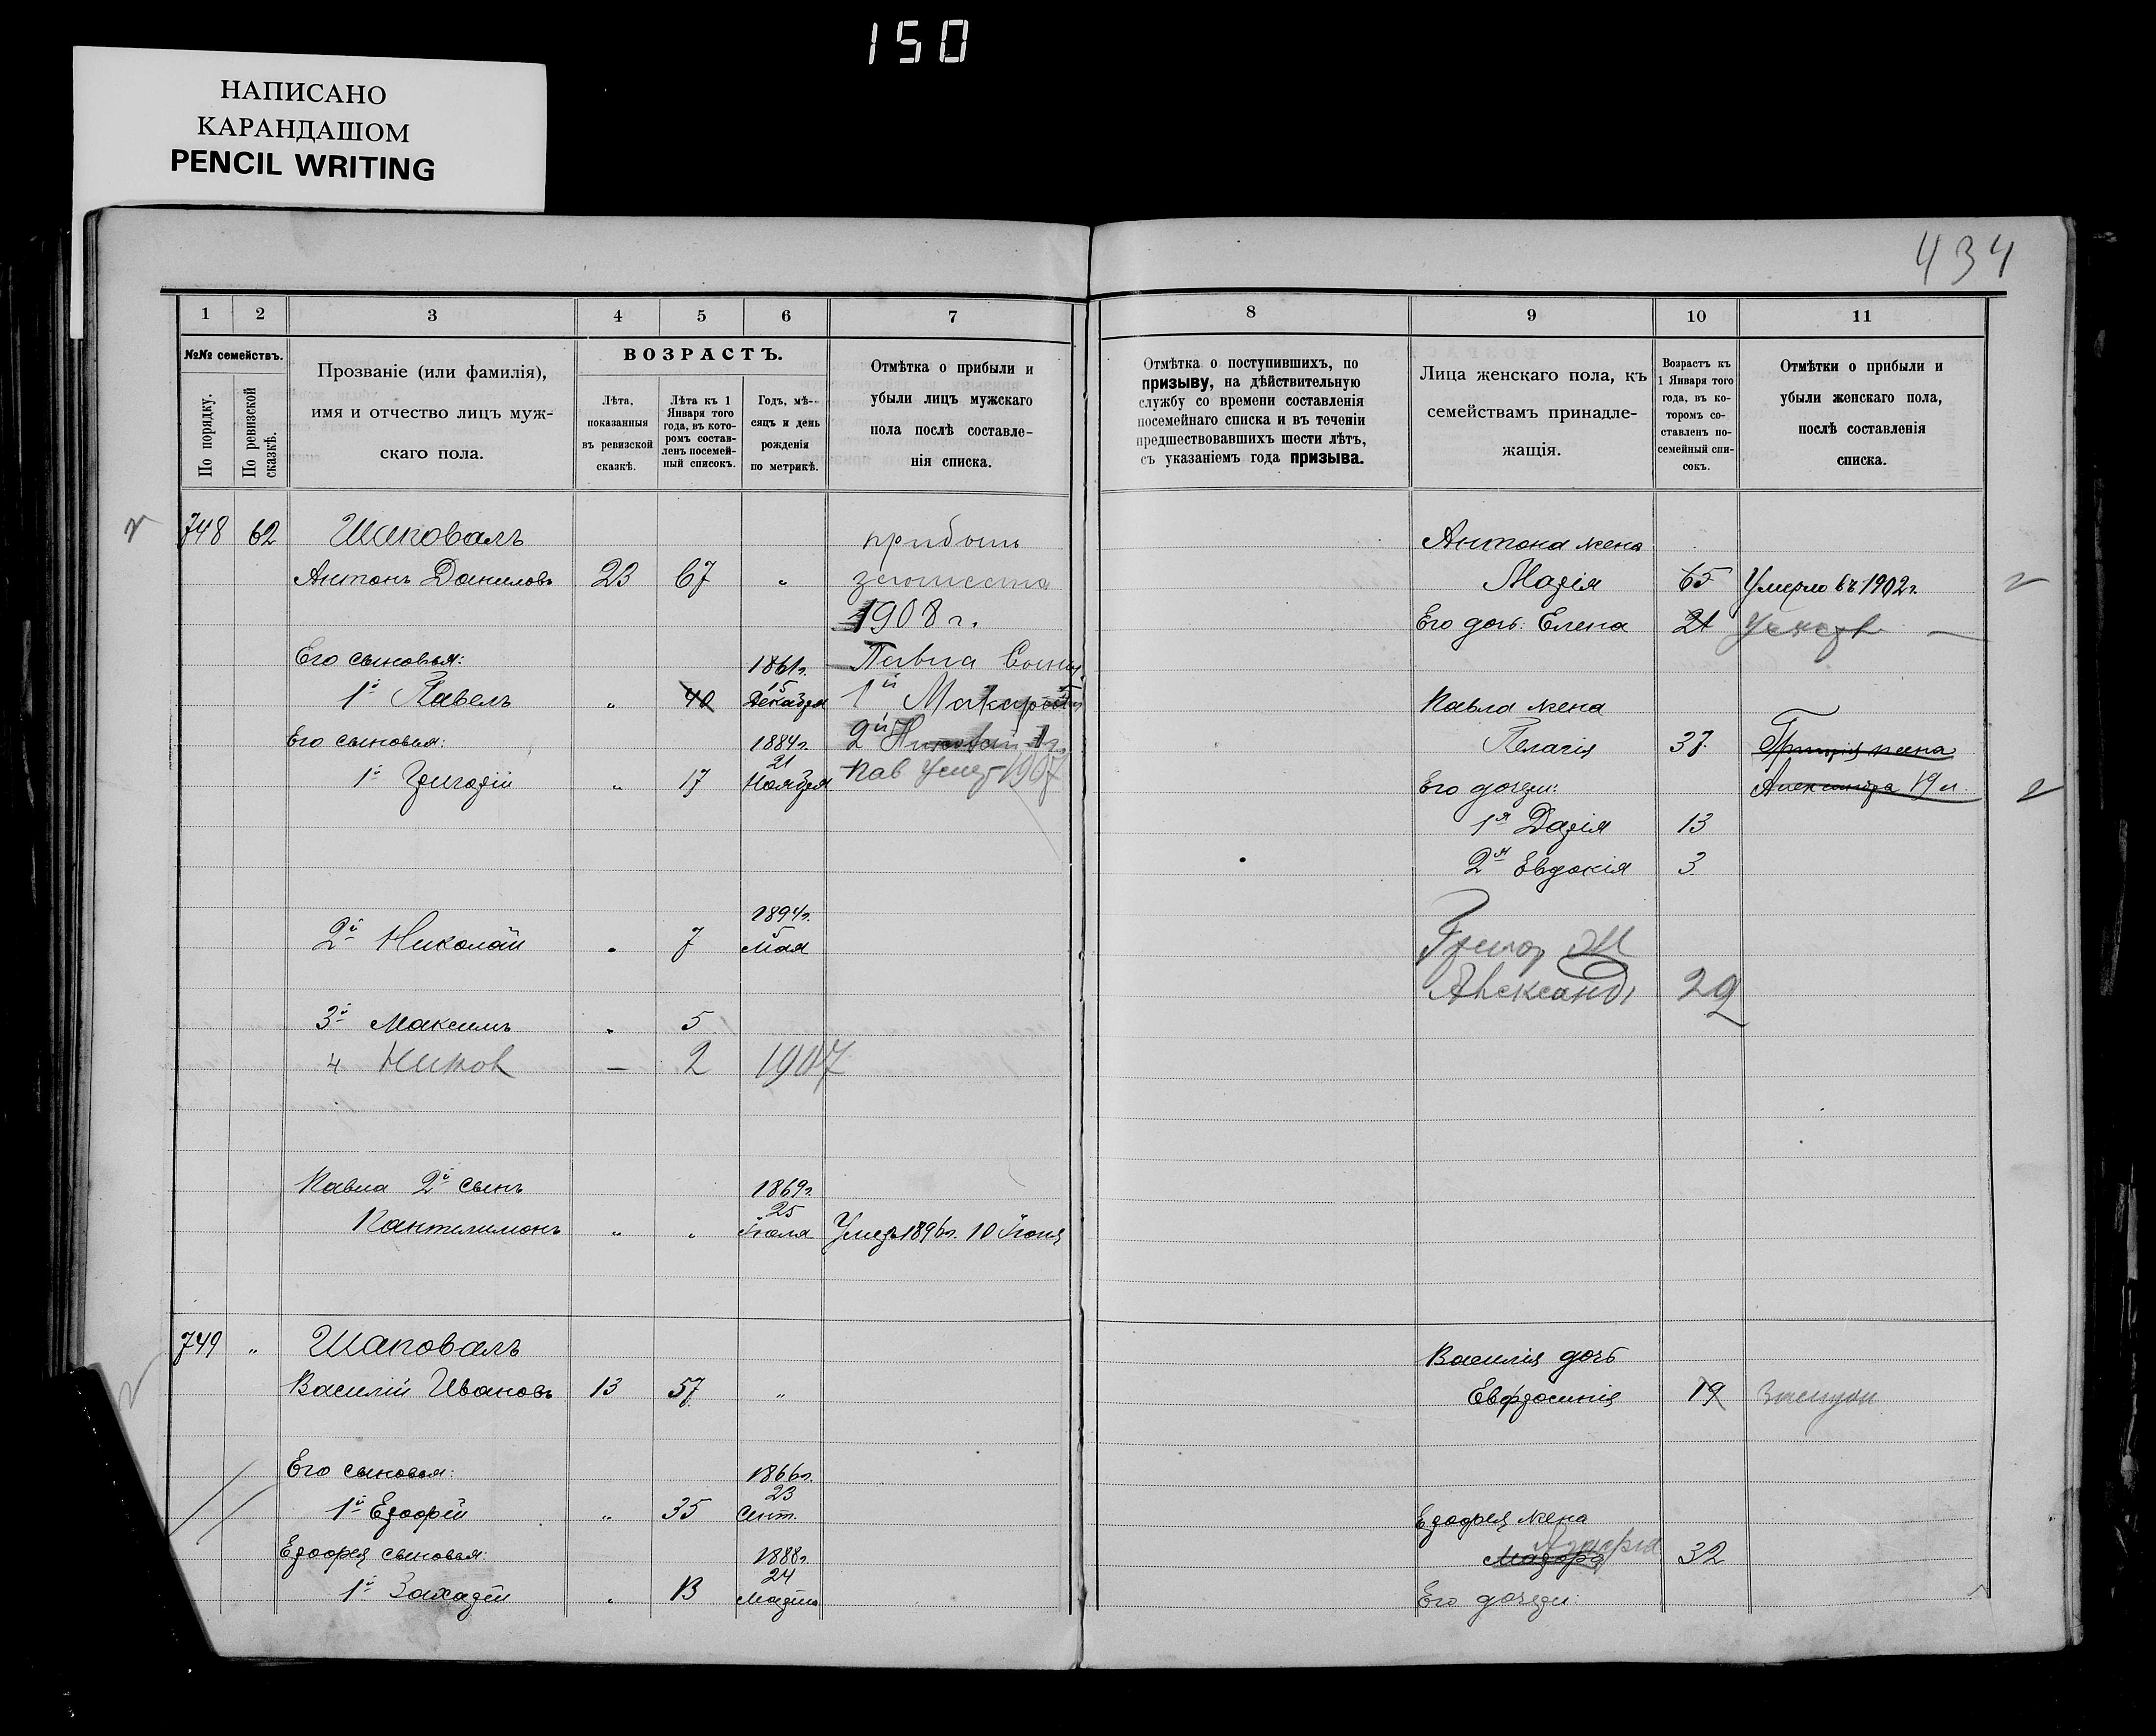 150
НАПИСАНО
КАРАНДАШОМ
PENCIL WRITING
434
1 2 3 4 5 6 7
№№ семействъ.
По порядку.
По ревизской сказкѣ.
Прозваніе (или фамилія),
имя и отчество лицъ муж-
скаго пола.
ВОЗРАСТЪ.
Лѣта,
показанныя
въ ревизской
сказкѣ.
Лѣта къ 1
Января того
года, въ кото-
ромъ состав-
ленъ посемей-
ный списокъ.
Годъ, мѣ-
сяцъ и день
рожденія
по метрикѣ.
Отмѣтка о прибыли и
убыли лицъ мужскаго
пола послѣ составле-
нія списка.
748 62 Шаповалъ
Антонъ Даниловъ 23 67 „
1908 г.
Его сыновья: 1861г. Павла
1й Павелъ „ 40 15 Декабря 1й
Его сыновья: 1884г. 2й
1й Григорій „ 17 21 Ноября 1907
2й Николай „ 7 1894г. 5 Мая
3й Максимъ „ 5
4 — 2 1907
Павла 2й сынъ 1869г.
Пантелимонъ „ „ 25 Іюля Умеръ 1896г. 10 Іюня
749 „ Шаповалъ
Василій Ивановъ 13 57 „
Его сыновья: 1866г.
1й Ерофѣй „ 35 23 Сент.
Ерофея сыновья: 1888г.
1й Захарій „ 13 24 Марта
8 9 10 11
Отмѣтка о поступившихъ, по
призыву, на дѣйствительную
службу со времени составленія
посемейнаго списка и въ теченіи
предшествовавшихъ шести лѣтъ,
съ указаніемъ года призыва.
Лица женскаго пола, къ
семействамъ принадле-
жащія.
Возрастъ къ
1 Января того
года, въ ко-
торомъ со-
ставленъ по-
семейный спи-
сокъ.
Отмѣтки о прибыли и
убыли женскаго пола,
послѣ составленія
списка.
Антона жена
Марія 65 Умерла въ 1902г.
Его дочь: Елена 21
Павла жена
Пелагія 37 Григорія жена
Его дочери: Александра 19 л.
1я Дарія 13
2я Евдокія 3
Григор
Александ 22
Василія дочь
Евфросинія 19
Ерофея жена
32
Его дочери: